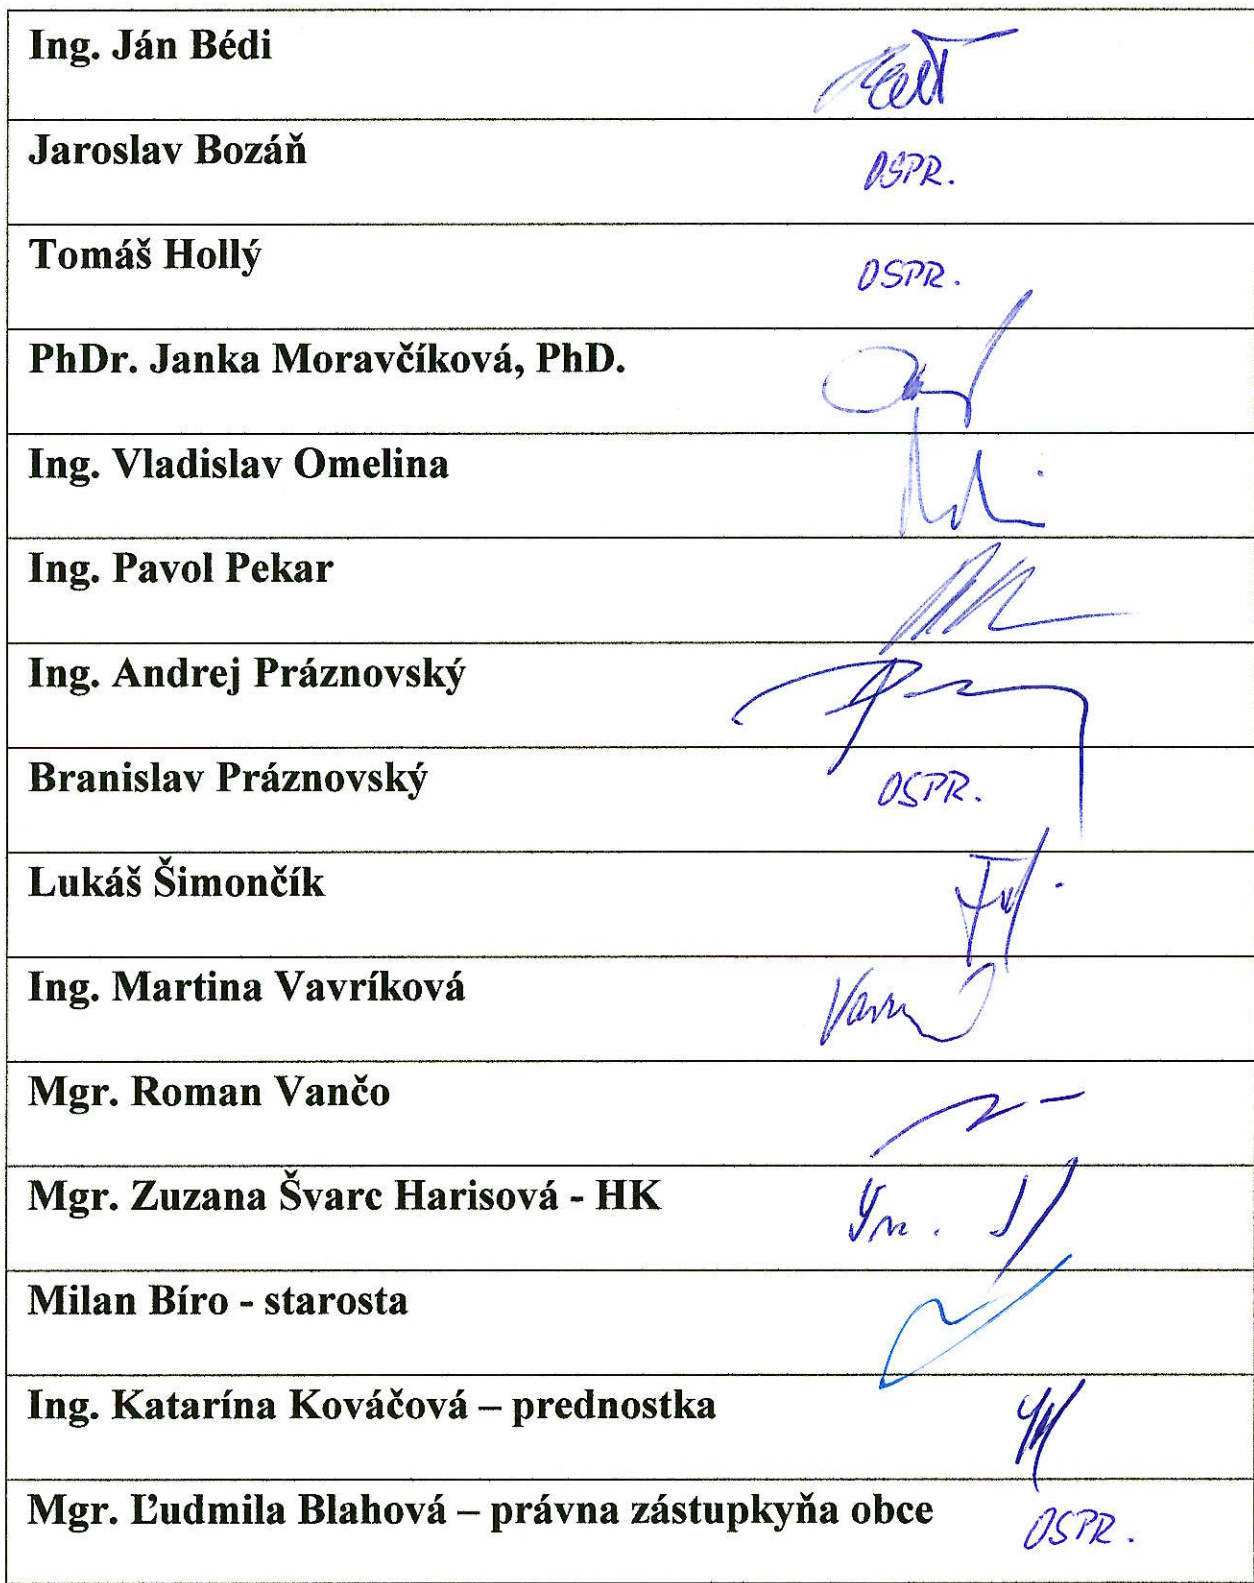 Ing. Ján Bédi
Jaroslav Bozáň OSPR.
Tomáš Hollý OSPR.
PhDr. Janka Moravčíková, PhD.
Ing. Vladislav Omelina
Ing. Pavol Pekar
Ing. Andrej Práznovský
Branislav Práznovský OSPR.
Lukáš Šimončík
Ing. Martina Vavríková
Mgr. Roman Vančo
Mgr. Zuzana Švarc Harisová - HK
Milan Bíro - starosta
Ing. Katarína Kováčová – prednostka
Mgr. Ľudmila Blahová – právna zástupkyňa obce OSPR.